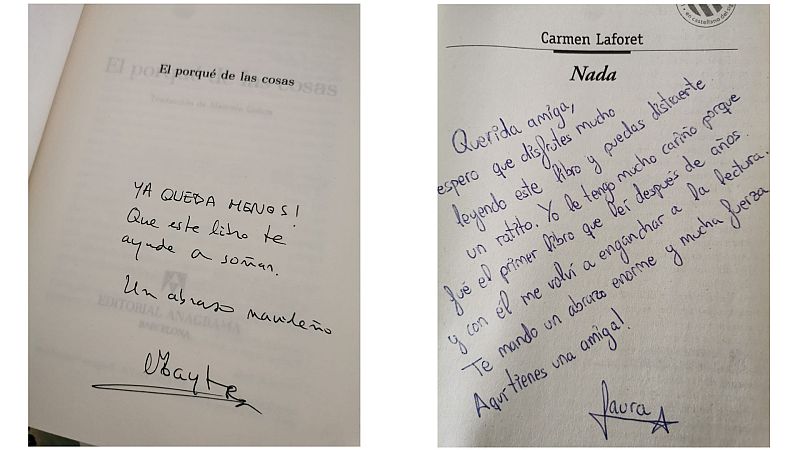 El porqué de las cosas
YA QUEDA MENOS!
Que este libro te
ayude a soñar.
Un abrazo navideño
EDITORIAL ANAGRAMA
BARCELONA
Mayte
Carmen Laforet
Nada
Querida amiga,
espero que disfrutes mucho
leyendo este libro y puedas distraerte
un ratito. Yo le tengo mucho cariño porque
fué el primer libro que leí después de años.
y con él me volví a enganchar a la lectura.
Te mando un abrazo enorme y mucha fuerza
Aquí tienes una amiga!
Laura